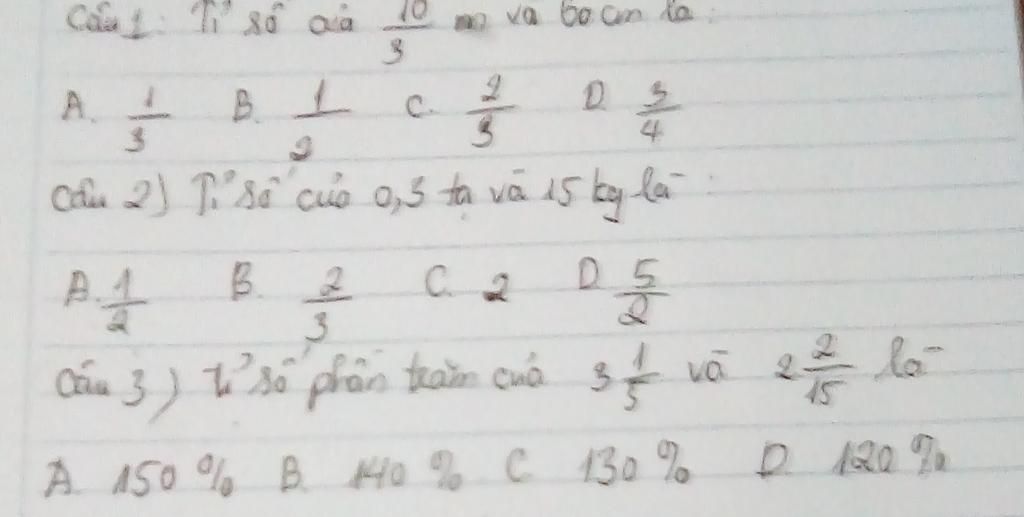 Câu 1: Tỉ số của 10/3 m và 60 cm là:
A. 1/3 B. 1/2 C. 2/3 D. 3/4
Câu 2) Tỉ số của 0,3 tạ và 15 kg là:
A. 1/2 B. 2/3 C. 2 D. 5/2
Câu 3) tỉ số phần trăm của 3 1/5 và 2 2/15 là
A. 150% B. 140% C. 130% D. 120%